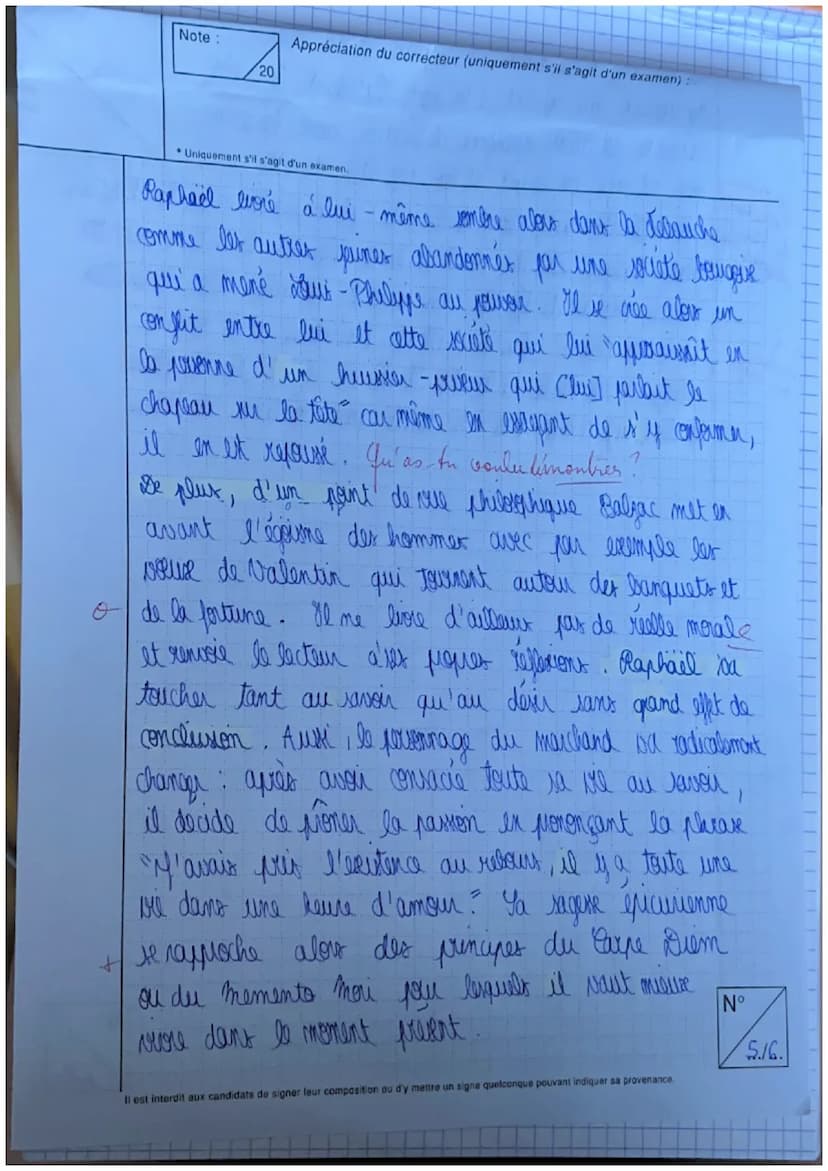 Note :
20
Appréciation du correcteur (uniquement s'il s'agit d'un examen) :
* Uniquement s'il s'agit d'un examen.
Raphaël livré à lui-même sombre alors dans la débauche
comme les autres jeunes abandonnés par une société bourgeoise
qui a mené Louis-Philippe au pouvoir. Il se crée alors un
conflit entre lui et cette société qui lui "apparaissait en
la personne d'un huissier-priseur qui [lui] parlait le
chapeau sur la tête" car même en essayant de s'y conformer,
il en est repoussé. Qu'as-tu voulu démontrer ?
De plus, d'un point de vue philosophique Balzac met en
avant l'égoïsme des hommes avec par exemple les
voeux de Valentin qui tournent autour des banquets et
de la fortune. Il ne livre d'ailleurs pas de réelle morale
et renvoie le lecteur à ses propres réflexions. Raphaël va
toucher tant au savoir qu'au désir sans grand effet de
conclusion. Aussi, le personnage du marchand va radicalement
changer : après avoir consacré toute sa vie au savoir,
il décide de prôner la passion en prononçant la phrase
"J'avais pris l'existence au rebours, il y a toute une
vie dans une heure d'amour". Sa sagesse épicurienne
+ se rapproche alors des principes du Carpe Diem
ou du Memento Mori pour lesquels il vaut mieux
vivre dans le moment présent.
N°
5/6.
Il est interdit aux candidats de signer leur composition ou d'y mettre un signe quelconque pouvant indiquer sa provenance.